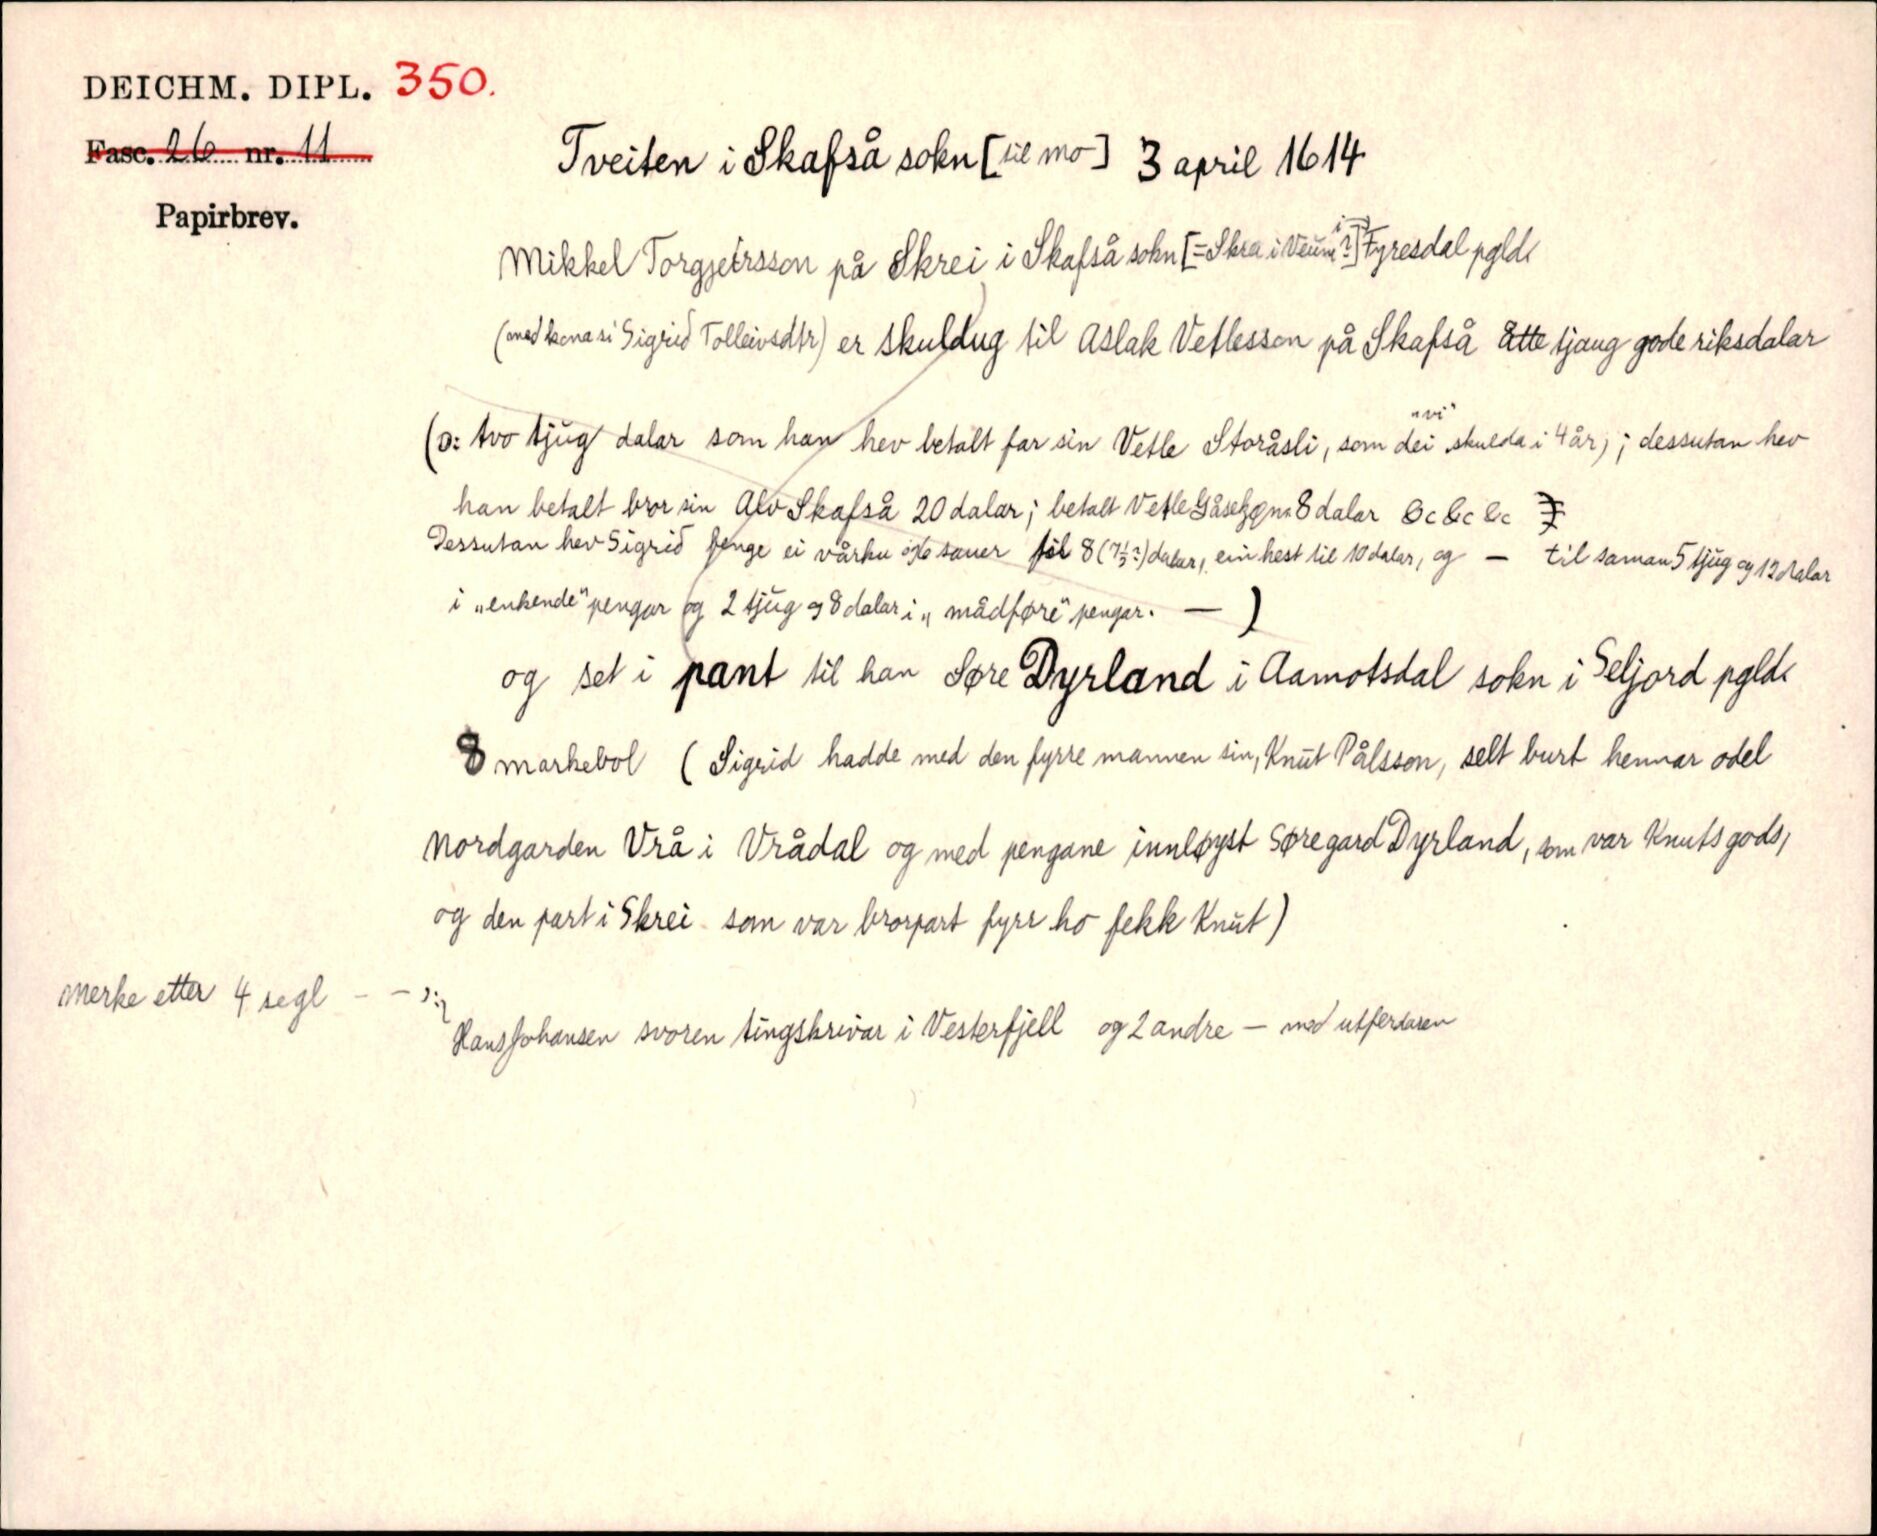 DEICHM. DIPL. 350.
Fasc. 26 nr. 11
Papirbrev.
Tveiten i Skafså sokn [til Mo] 3 april 1614
Mikkel Torgjeirsson på Skrei i Skafså sokn [=Skra i Veum?] i Fyresdal pgld.
(med kona si Sigrid Tolleivsdtr) er skuldug til Aslak Vetlesson på Skafså åtte tjaug gode riksdalar
(ɔ: tvo tjug dalar som han hev betalt far sin Vetle Storåsli, som dei "vi" skulda i 4 år); dessutan hev
han betalt bror sin Alv Skafså 20 dalar; betalt Vetle 8 dalar &c &c &c
Dessutan hev Sigrid fenge ei vårku og 6 sauer til 8 (7½?) dalar, ein hest til 10 dalar, og — til saman 5 tjug og 12 dalar
i „enkende" pengar og 2 tjug og 8 dalar i „mådføre" pengar. — )
og set i pant til han Søre Dyrland i Aamotsdal sokn i Seljord pgld.
8 markebol (Sigrid hadde med den fyrre mannen sin, Knut Pålsson, selt burt hennar odel
Nordgarden Vrå i Vrådal og med pengane innløyst Søregard Dyrland, som var Knuts gods,
og den part i Skrei som var brorpart fyrr ho fekk Knut)
Merke etter 4 segl - - ɔ:
Hans Johansen svoren tingskrivar i Vesterfjell og 2 andre — med utferdaren